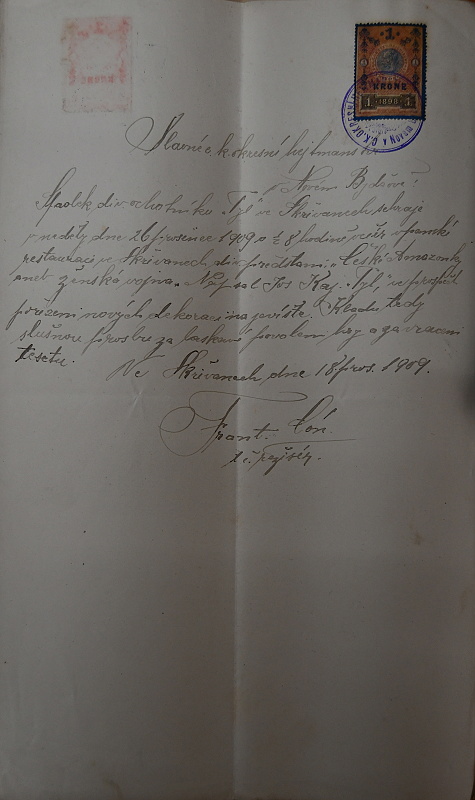 1
KRONE
1 1898 1
Slavné c. k. okresní hejtmanství
v Novém Bydžově!
Spolek div. ochotníků "Tyl" ve Skřivanech sehraje
v neděli dne 26 prosince 1909 o ½ 8 hodině več. v panské
restauraci ve Skřivanech div. představení: "České Amazonky
aneb ženská vojna". Napsal Jos. Kaj. Tyl, ve prospěch
pořízení nových dekorací na jeviště. Klade tedy
slušnou prosbu za laskavé povolení hry a za vrácení
textu.
Ve Skřivanech, dne 18 pros. 1909.
Frant.
t. č. režisér.